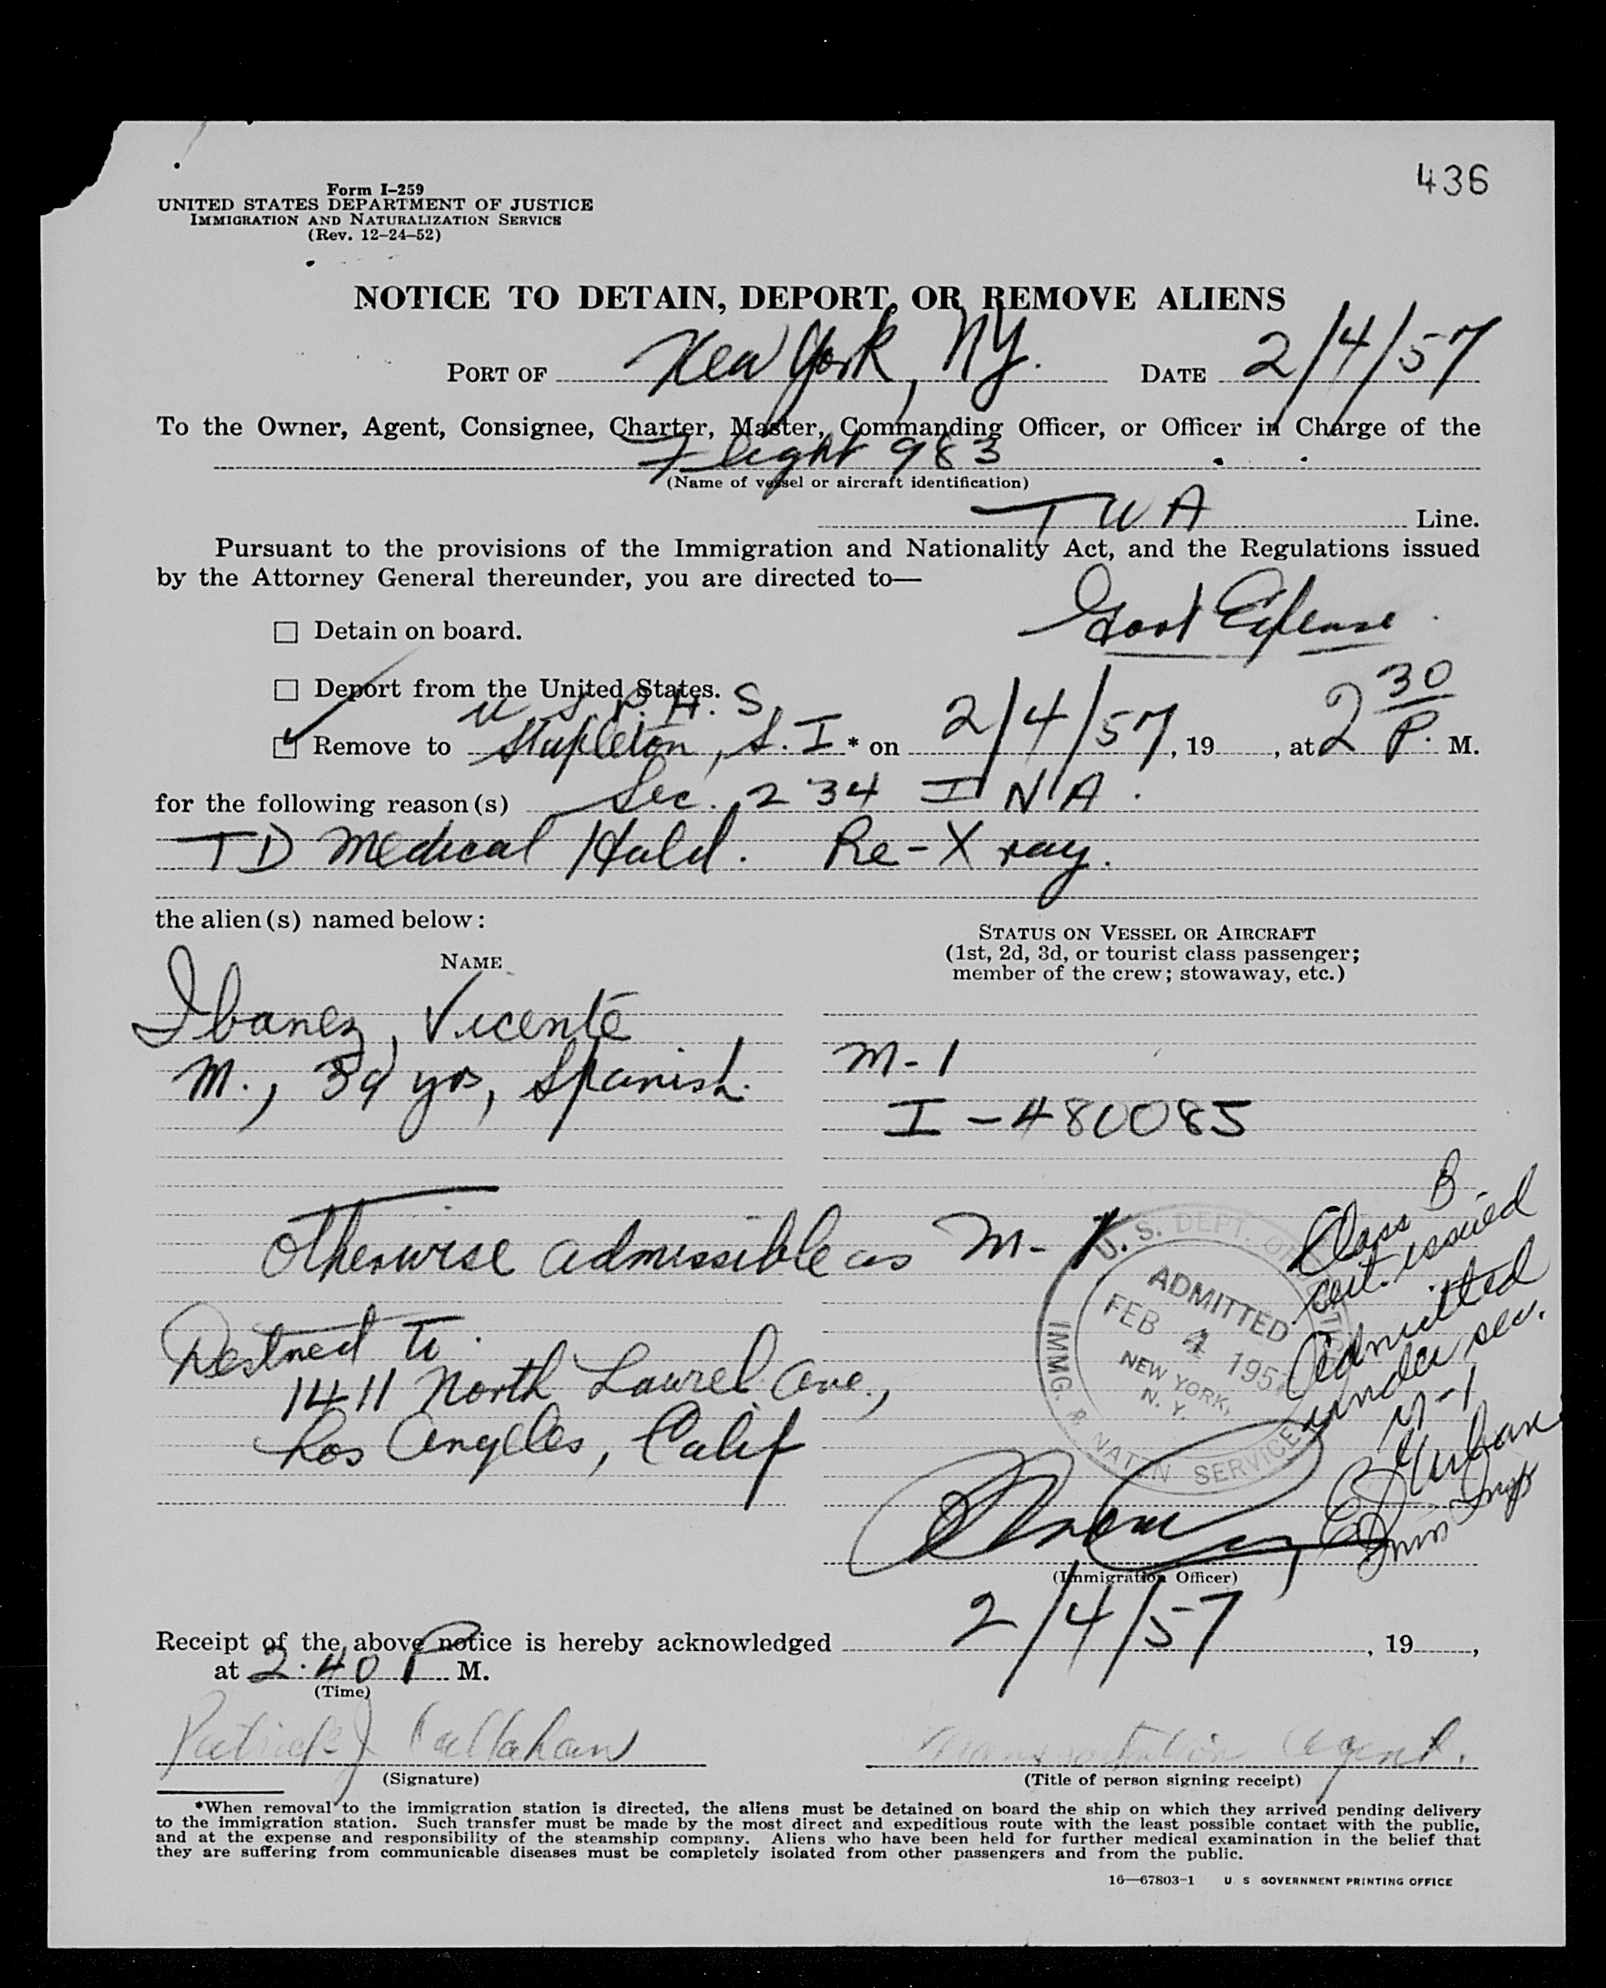 436
Form I-259
UNITED STATES DEPARTMENT OF JUSTICE
IMMIGRATION AND NATURALIZATION SERVICE
(Rev. 12-24-52)
NOTICE TO DETAIN, DEPORT, OR REMOVE ALIENS
PORT OF New York, NY. DATE 2/4/57
To the Owner, Agent, Consignee, Charter, Master, Commanding Officer, or Officer in Charge of the
Flight 983
(Name of vessel or aircraft identification)
TWA Line.
Pursuant to the provisions of the Immigration and Nationality Act, and the Regulations issued
by the Attorney General thereunder, you are directed to—
Govt Expense
☐ Detain on board.
☐ Deport from the United States.
U.S.P.H.S.
☑ Remove to Stapleton, S.I * on 2/4/57, 19, at 2 30 P. M.
for the following reason(s) Sec. 234 INA.
TD Medical Hold. Re-X ray.
the alien(s) named below:
NAME
STATUS ON VESSEL OR AIRCRAFT
(1st, 2d, 3d, or tourist class passenger;
member of the crew; stowaway, etc.)
Ibanez, Vicente
M., 39 yrs, Spanish.
M-1
I-480085
Otherwise admissible as M-1
Destined to
1411 North Laurel Ave.,
Los Angeles, Calif
U.S. DEPT. OF JUSTICE
ADMITTED
FEB 4 1957
NEW YORK,
N. Y.
IMMG. & NAT'N SERVICE
Class B
cert. issued
Admitted
under sec.
M-1
Urban
Imm Insp
(Immigration Officer)
Receipt of the above notice is hereby acknowledged 2/4/57, 19,
at 2.40 P M.
(Time)
Patrick J Callahan
Transportation Agent.
(Signature)
(Title of person signing receipt)
*When removal to the immigration station is directed, the aliens must be detained on board the ship on which they arrived pending delivery
to the immigration station. Such transfer must be made by the most direct and expeditious route with the least possible contact with the public,
and at the expense and responsibility of the steamship company. Aliens who have been held for further medical examination in the belief that
they are suffering from communicable diseases must be completely isolated from other passengers and from the public.
16—67803-1 U S GOVERNMENT PRINTING OFFICE